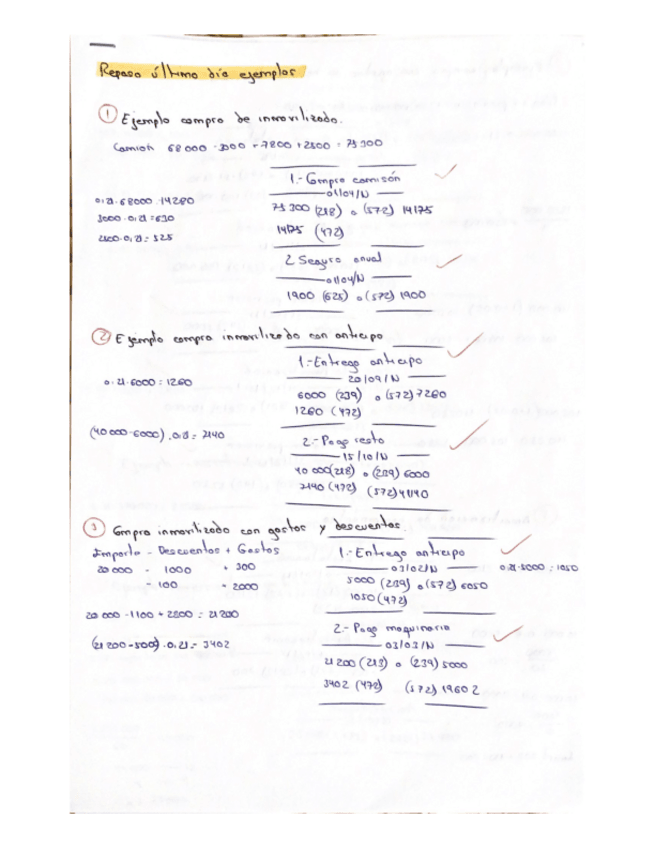 Repaso último día ejemplos
① Ejemplo compra de inmovilizado.
Camión 68 000 - 3000 + 7800 + 2500 = 75 300
1.- Compra camión
01/04/N
0'21 · 68000 = 14280
3000 · 0'21 = 630
2500 · 0'21 = 525
75 300 (218) a (572) 14175
14175 (472)
2 Seguro anual
01/04/N
1900 (625) a (572) 1900
② Ejemplo compra inmovilizado con anticipo
1.- Entrega anticipo
20/09/N
0'21 · 6000 = 1260
6000 (239) a (572) 7260
1260 (472)
(40 000 - 6000) · 0'21 = 7140
2.- Pago resto
15/10/N
40 000 (218) a (239) 6000
7140 (472) (572) 41140
③ Compra inmovilizado con gastos y descuentos.
Importe - Descuentos + Gastos
20 000 - 1000 + 300
- 100 + 2000
1.- Entrega anticipo
03/02/N
0'21 · 5000 = 1050
5000 (239) a (572) 6050
1050 (472)
20 000 - 1100 + 2300 = 21 200
2.- Pago maquinaria
03/03/N
(21 200 - 5000) · 0'21 = 3402
21 200 (213) a (239) 5000
3402 (472) (572) 19602